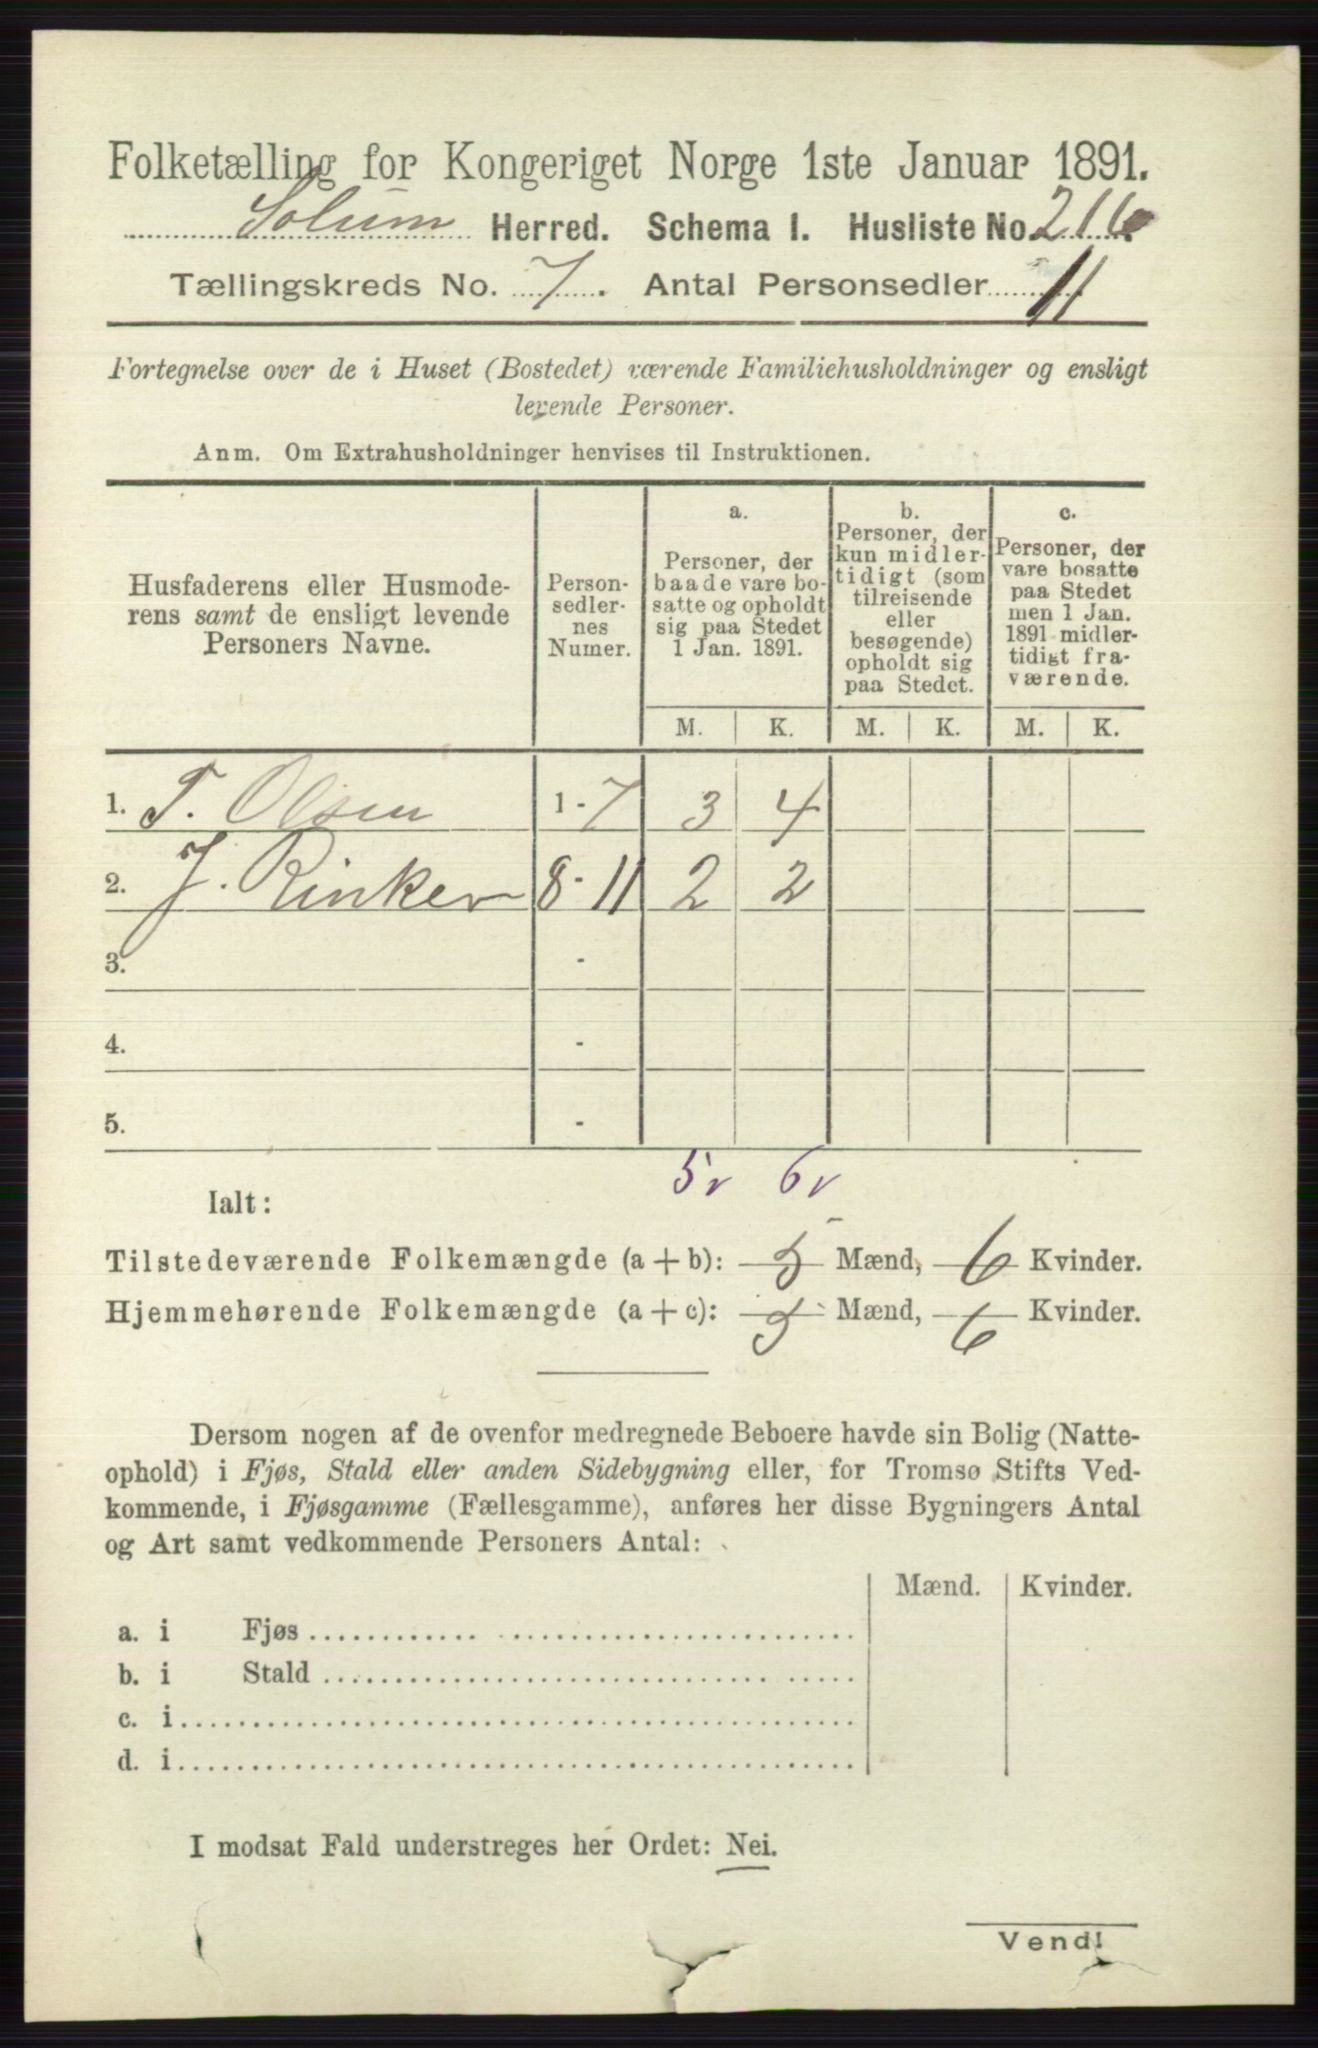 Folketælling for Kongeriget Norge 1ste Januar 1891.
Solum Herred. Schema I. Husliste No. 216
Tællingskreds No. 7. Antal Personsedler 11
Fortegnelse over de i Huset (Bostedet) værende Familiehusholdninger og ensligt
levende Personer.
Anm. Om Extrahusholdninger henvises til Instruktionen.
Husfaderens eller Husmode-
rens samt de ensligt levende
Personers Navne.
Person-
sedler-
nes
Numer.
a.
Personer, der
baade vare bo-
satte og opholdt
sig paa Stedet
1 Jan. 1891.
b.
Personer, der
kun midler-
tidigt (som
tilreisende
eller
besøgende)
opholdt sig
paa Stedet.
c.
Personer, der
vare bosatte
paa Stedet
men 1 Jan.
1891 midler-
tidigt fra-
værende.
M. K. M. K. M. K.
1. T. Olsen 1 - 7 3 4
2. J. Rinker 8 - 11 2 2
3. -
4. -
5. -
5 v 6 v
Ialt:
Tilstedeværende Folkemængde (a + b): 5 Mænd, 6 Kvinder.
Hjemmehørende Folkemængde (a + c): 5 Mænd, 6 Kvinder.
Dersom nogen af de ovenfor medregnede Beboere havde sin Bolig (Natte-
ophold) i Fjøs, Stald eller anden Sidebygning eller, for Tromsø Stifts Ved-
kommende, i Fjøsgamme (Fællesgamme), anføres her disse Bygningers Antal
og Art samt vedkommende Personers Antal:
Mænd. Kvinder.
a. i Fjøs
b. i Stald
c. i
d. i
I modsat Fald understreges her Ordet: Nei.
Vend!